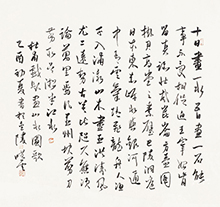 十日畫一水五日畫一石能
事不受相促迫王宰始肯
留真跡壯哉崑崙方壺圖
挂君高堂之素壁巴陵洞庭
日本東赤岸水與銀河通
中有雲氣隨飛龍舟人漁
子入浦漵山木盡亞洪濤風
尤工遠勢古莫比咫尺應須
論萬里焉得并州快剪刀
剪取吳淞半江水
杜甫戲題畫山水圖歌
己酉初夏書於金陵